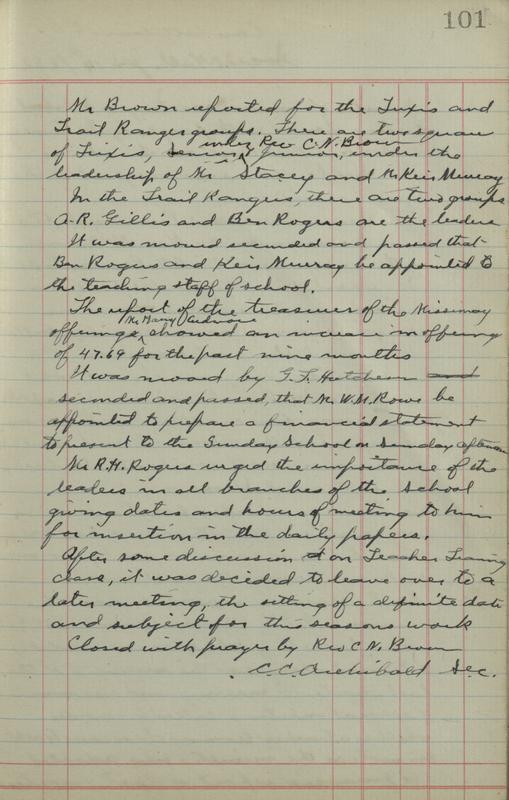 101
Mr Brown reported for the Tuxis and
Trail Ranger groups. There are two square
of Tuxis, senior, under Rev C. N. Brown junior, under the
leadership of Mr Stacey and Mr Keir Murray
In the Trail Rangers, there are two groups
A-R. Gillis and Ben Rogers are the leaders
It was moved seconded and passed that
Ben Rogers and Keir Murray be appointed to
the teaching staff of school.
The report of the treasurer of the Missionary
offerings, Mr Harry showed an increase in offering
of 47.69 for the past nine months
It was moved by G. F. Hutcheson and
seconded and passed, that Mr W. M. Rowe be
appointed to prepare a financial statement
to present to the Sunday School on Sunday afternoon
Mr R. H. Rogers urged the importance of the
leaders in all branches of the school
giving dates and hours of meeting to him
for insertion in the daily papers.
After some discussion on Teacher Training
class, it was decided to leave over to a
later meeting, the setting of a definite date
and subject for this seasons work
Closed with prayer by Rev C. N. Brown
C. C. Archibald Sec.